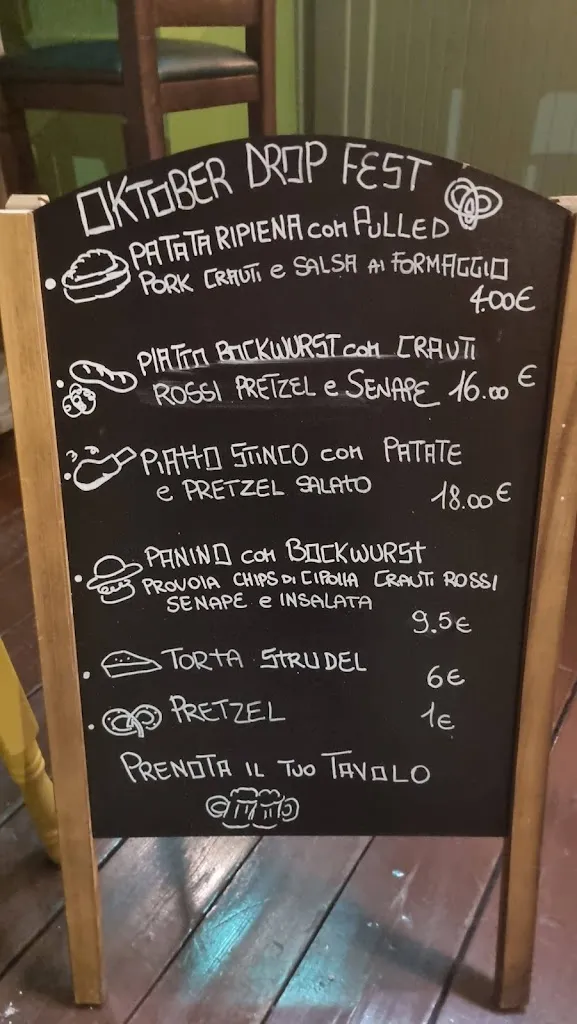 OKTOBER DROP FEST
PATATA RIPIENA con PULLED
PORK CRAUTI e SALSA AI FORMAGGIO
4.00€
PIATTO BOCKWURST con CRAUTI
ROSSI PRETZEL e SENAPE 16.00€
PIATTO STINCO con PATATE
e PRETZEL SALATO
18.00€
PANINO con BOCKWURST
PROVOLA CHIPS DI CIPOLLA CRAUTI ROSSI
SENAPE e INSALATA
9.5€
TORTA STRUDEL
6€
PRETZEL
1€
PRENOTA IL TUO TAVOLO